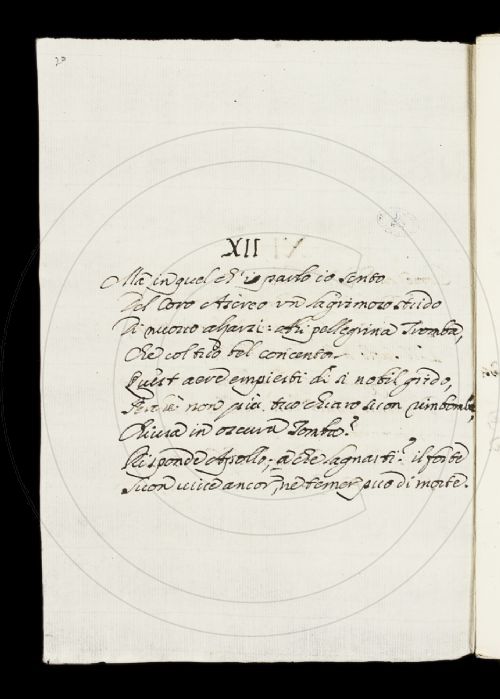 20
XII
Ma in quel ch'io parlo io sento
Del Coro Ascreo un lagrimoso strido
Di nuovo alzarsi: ahi pellegrina Tromba,
Che col tuo bel concento
Quest aere empiesti di si nobil grido,
non più tuo chiaro suon rimbomba
Chiusa in oscura Tomba?
Risponde Apollo; a che lagnarti? il forte
Suon vive ancor, ne temer può di morte.